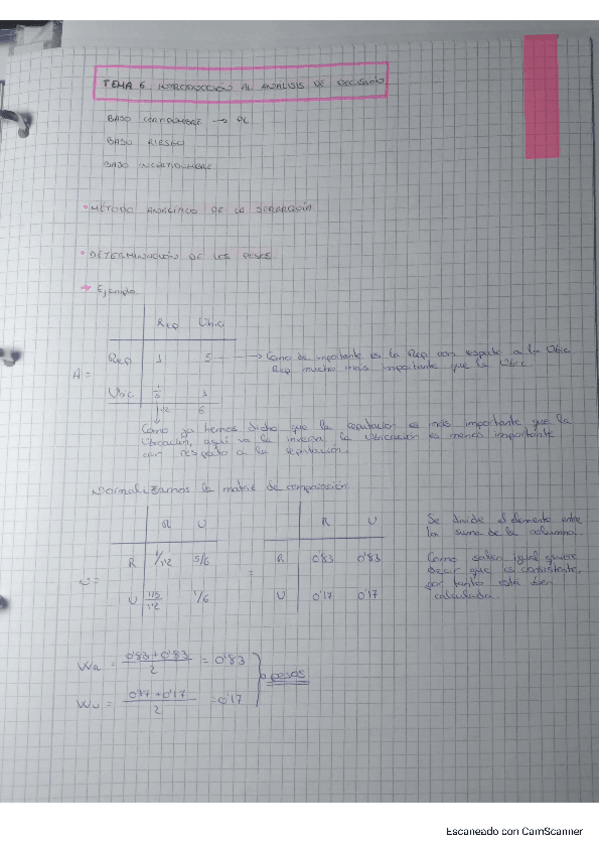 TEMA 6. INTRODUCCIÓN AL ANÁLISIS DE DECISIÓN
BAJO CERTIDUMBRE → PL
BAJO RIESGO
BAJO INCERTIDUMBRE
• MÉTODO ANALÍTICO DE LA JERARQUÍA
• DETERMINACIÓN DE LOS PESOS
→ Ejemplo.
Rep Ubic
A =
Rep 1 5 → Cómo de importante es la Rep con respecto a la Ubic
Rep mucho más importante que la Ubic
Ubic 1/5 1
1'2 6
Como ya hemos dicho que la reputación es más importante que la
ubicación, aquí va la inversa, la ubicación es menos importante
con respecto a la reputación.
Normalizamos la matriz de comparación
R U
R 1/1'2 5/6
U 1/5/1'2 1/6
=
R U
R 0'83 0'83
U 0'17 0'17
Se divide el elemento entre
la suma de la columna.
Como salen igual quiere
decir que es consistente,
por tanto está bien
calculada.
0'83 + 0'83 / 2 = 0'83
Wu = 0'17 + 0'17 / 2 = 0'17
pesos
Escaneado con CamScanner